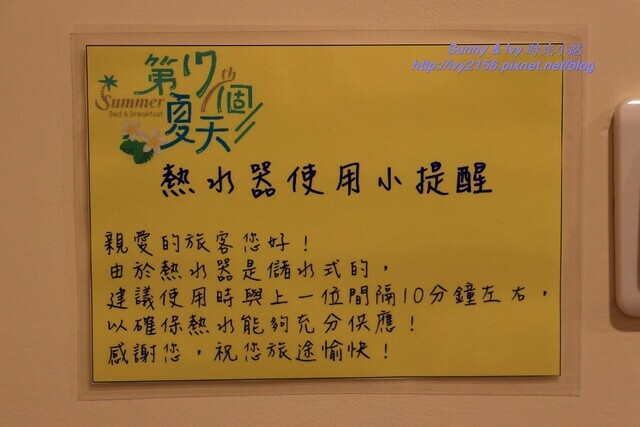 Sunny & Ivy 時光小站
http://ivy2156.pixnet.net/blog
第17個夏天
th
Summer
Bed & Breakfast
熱水器使用小提醒
親愛的旅客您好！
由於熱水器是儲水式的，
建議使用時與上一位間隔10分鐘左右，
以確保熱水能夠充分供應！
感謝您，祝您旅途愉快！